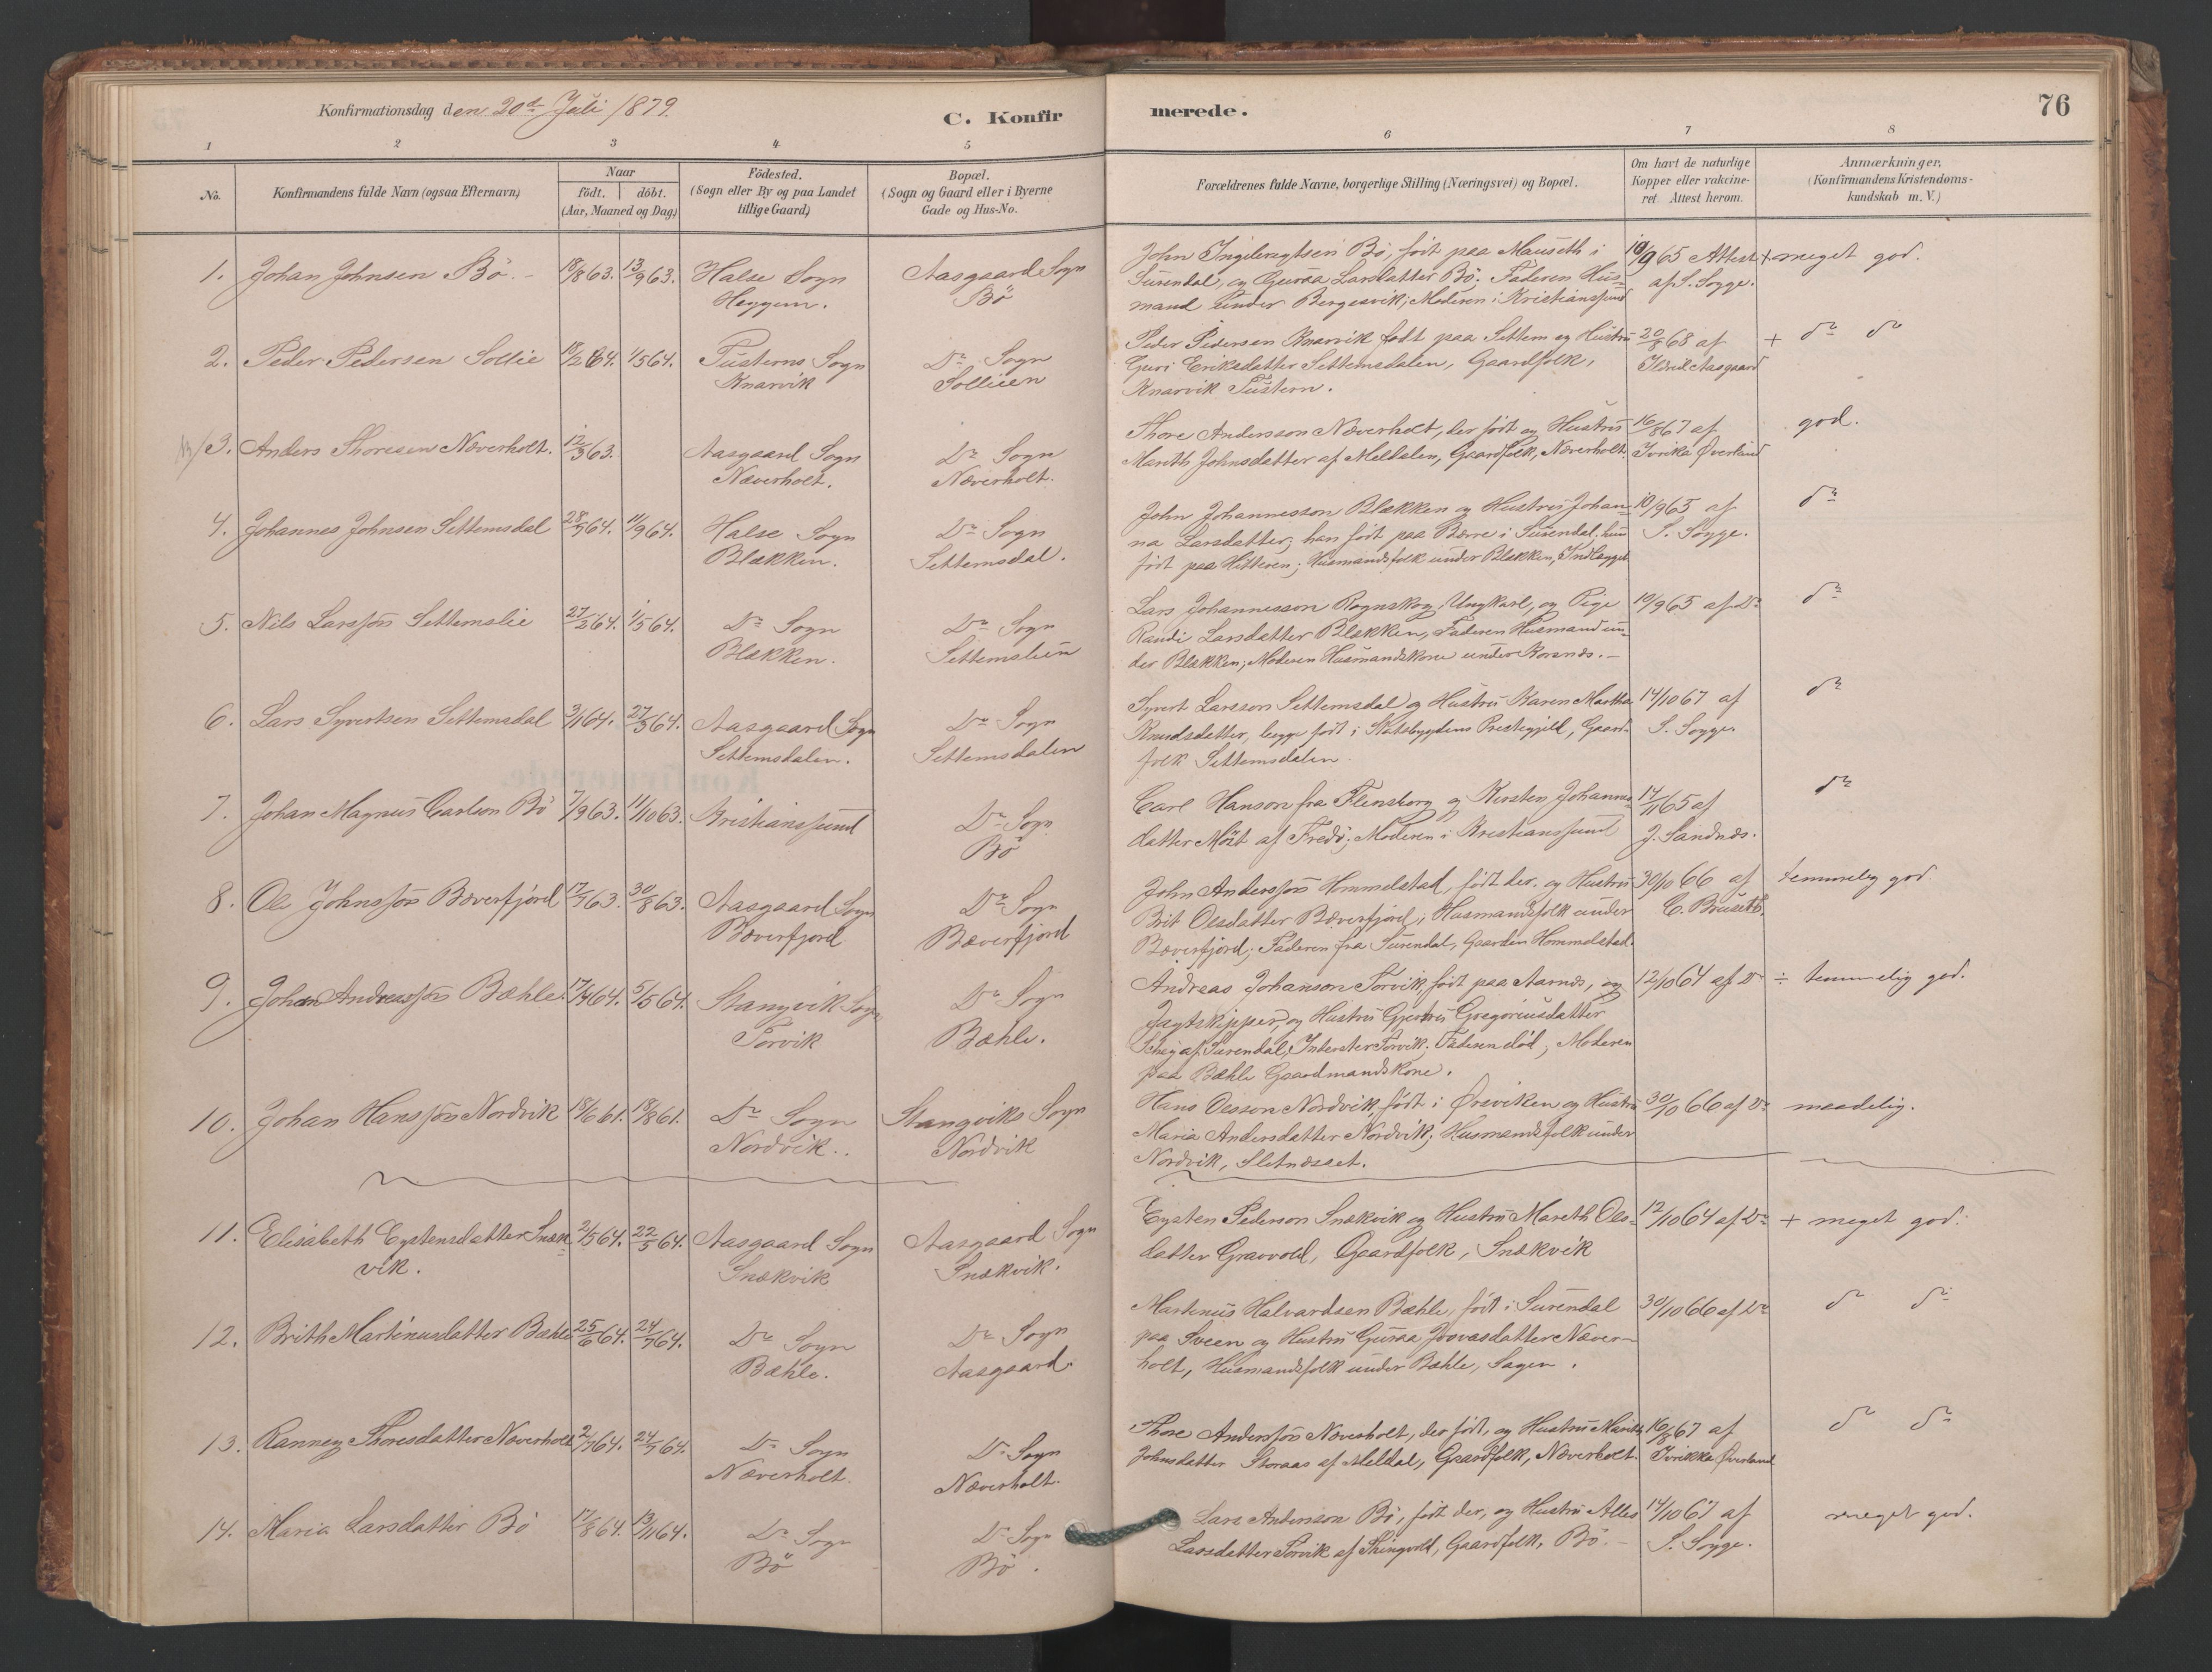 Konfirmationsdag den 20de Juli 1879.
C. Konfirmerede.
76
1 2 3 4 5 6 7 8
No.
Konfirmandens fulde Navn (ogsaa Efternavn)
Naar
födt. döbt.
(Aar, Maaned og Dag)
Födested.
(Sogn eller By og paa Landet
tillige Gaard)
Bopæl.
(Sogn og Gaard eller i Byerne
Gade og Hus-No.
Forældrenes fulde Navne, borgerlige Stilling (Næringsvei) og Bopæl.
Om havt de naturlige
Kopper eller vakcine-
ret. Attest herom.
Anmærkninger.
(Konfirmandens Kristendoms-
kundskab m. V.)
1. Johan Johnsen Bö. 18/8 63. 13/9 63. Halse Sogn Aasgaard Sogn
Heggem. Bö
John Ingebrigtsen Bö, födt paa Mauseth i 10/9 65 Attest + meget god.
Surendal, og Guraa Larsdatter Bö. Faderen Hus- af S. Sogge.
mand under Bergesvik; Moderen i Kristianssund
2. Peder Pedersen Sollie 18/2 64. 1/5 64. Tusterns Sogn Do Sogn
Knarvik Sollien
Peder Pedersen Knarvik födt paa Settem og Hustru 20/8 68 af + do do
Guri Eriksdatter Settemsdalen, Gaardfolk, Ildrid Aasgaard
Knarvik Tustern.
3. Anders Thoresen Næverholt. 12/3 63. Aasgaard Sogn Do Sogn
Næverholt. Næverholt.
Thore Andersson Næverholt, der födt og Hustru 16/8 67 af god.
Marith Johnsdatter af Meldalen, Gaardfolk, Næverholt. Ivrikka Øverland
4. Johannes Johnsen Settemsdal 28/7 64. 11/9 64. Halse Sogn Do Sogn
Blækken. Settemsdal.
John Johannesson Blækken og Hustru Johan- 10/9 65 af do
na Larsdatter; han födt paa Bærre i Surendal, hun S. Sogge.
födt paa Hitteren; Husmandsfolk under Blækken, Indlægget
5. Nils Larssön Settemslie 27/2 64. 1/5 64. Do Sogn Do Sogn
Blækken. Settemslien
Lars Johannesson Rognskog, Ungkarl, og Pige 10/9 65 af do do
Randi Larsdatter Blækken, Faderen Husmand un-
der Blækken; Moderen Husmandskone under Korsnæs.
6. Lars Syvertsen Settemsdal 3/1 64. 27/3 64. Aasgaard Sogn Do Sogn
Settemsdalen. Settemsdalen
Syvert Larsson Settemsdal og Hustru Karen Martha 14/10 67 af do
Knudsdatter, begge födt i Statsbygdens Prestegjeld, Gaard- S. Sogge
folk Settemsdalen.
7. Johan Magnus Carlson Bö 7/9 63. 11/10 63. Kristianssund Do Sogn
Bö
Carl Hanson fra Flensborg og Kirsten Johannes- 14/11 65 af do
datter Möst af Fredö; Moderen i Kristianssund J. Sandnæs.
8. Ole Johnssön Bæverfjord 17/7 63. 30/8 63. Aasgaard Sogn Do Sogn
Bæverfjord Bæverfjord
John Anderssön Hommelstad, födt der, og Hustru 30/10 66 af temmelig god
Brit Olsdatter Bæverfjord; Husmandsfolk under C. Bruseth.
Bæverfjord; Faderen fra Surendal, Gaarden Hommelstad.
9. Johan Andreassön Bæhle. 17/4 64. 5/5 64. Stangvik Sogn Do Sogn
Torvik Bæhle.
Andreas Johanson Torvik, födt paa Aarnæs, og 12/10 64 af do ÷ temmelig god.
Jagtskipper, og Hustru Gjertru Gregoriusdatter
af Surendal; Inderster Torvik; Faderen död; Moderen
paa Bæhle Gaardmandskone.
10. Johan Hanssön Nordvik 18/6 61. 18/8 61. Do Sogn Stangviks Sogn
Nordvik.. Nordvik
Hans Olsson Nordvik, födt i Örsviken og Hustru 30/10 66 af do maadelig.
Maria Andersdatter Nordvik; Husmandsfolk under
Nordvik, Sletnæsset.
11. Elisabeth Eystensdatter Snæk- 2/5 64. 22/5 64. Aasgaard Sogn Aasgaard Sogn
vik. Snækvik Snækvik.
Eysten Pederson Snækvik og Hustru Mareth Ols- 12/10 64 af do + meget god.
datter Gravvold, Gaardfolk, Snækvik
12. Brith Martinusdatter Bæhle 25/6 64. 24/7 64. Do Sogn Do Sogn
Bæhle. Aasgaard.
Martinus Halvardsen Bæhle, födt i Surendal 30/10 66 af do do do
paa Sveen og Hustru Guraa Jovasdatter Næver-
holt, Husmandsfolk under Bæhle, Sagen.
13. Ranney Thoresdatter Næverholt 2/7 64. 24/7 64. Do Sogn Do Sogn
Næverholt. Næverholt.
Thore Anderssön Næverholt, der födt, og Hustru Marith 16/8 67 af do do
Johnsdatter Storaas af Meldal, Gaardfolk, Næverholt. Ivrikka Øverland
14. Maria Larsdatter Bö 17/8 64. 13/11 64. Do Sogn Do Sogn
Bö Bö.
Lars Anderson Bö, födt der, og Hustru Alles 14/10 67 af meget god.
Larsdatter Torvik af Thingvold, Gaardfolk, Bö. S. Sogge.